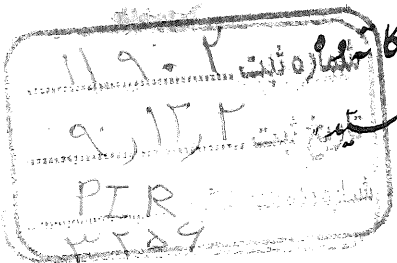 شماره ثبت ۱۱۹۰۲
تاریخ ثبت ۹۰,۱۲,۲
شماره PIR
۳۲۵۶